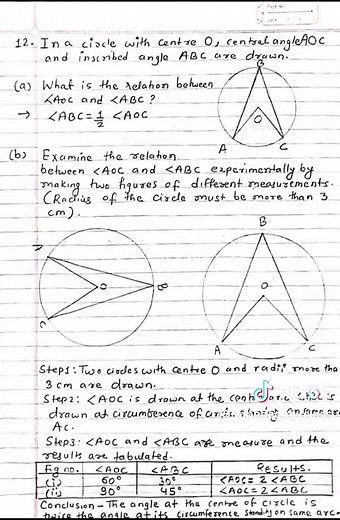 12. In a circle with centre O, central angle AOC
and inscribed angle ABC are drawn.
B
(a) What is the relation between
<AOC and <ABC ?
→ <ABC = 1/2 <AOC
O
A C
(b) Examine the relation
between <AOC and <ABC experimentally by
making two figures of different measurements.
(Radius of the circle must be more than 3
cm).
A O B C
B
O
A C
Step1: Two circles with centre O and radii more than
3 cm are drawn.
Step2: <AOC is drawn at the centre and <ABC is
drawn at circumference of circle standing on same arc
AC.
Step3: <AOC and <ABC are measure and the
results are tabulated.
Fig no. <AOC <ABC Results.
(i) 60° 30° <AOC = 2 <ABC
(ii) 90° 45° <AOC = 2 <ABC
Conclusion - The angle at the centre of circle is
twice the angle at its circumference standing on same arc.